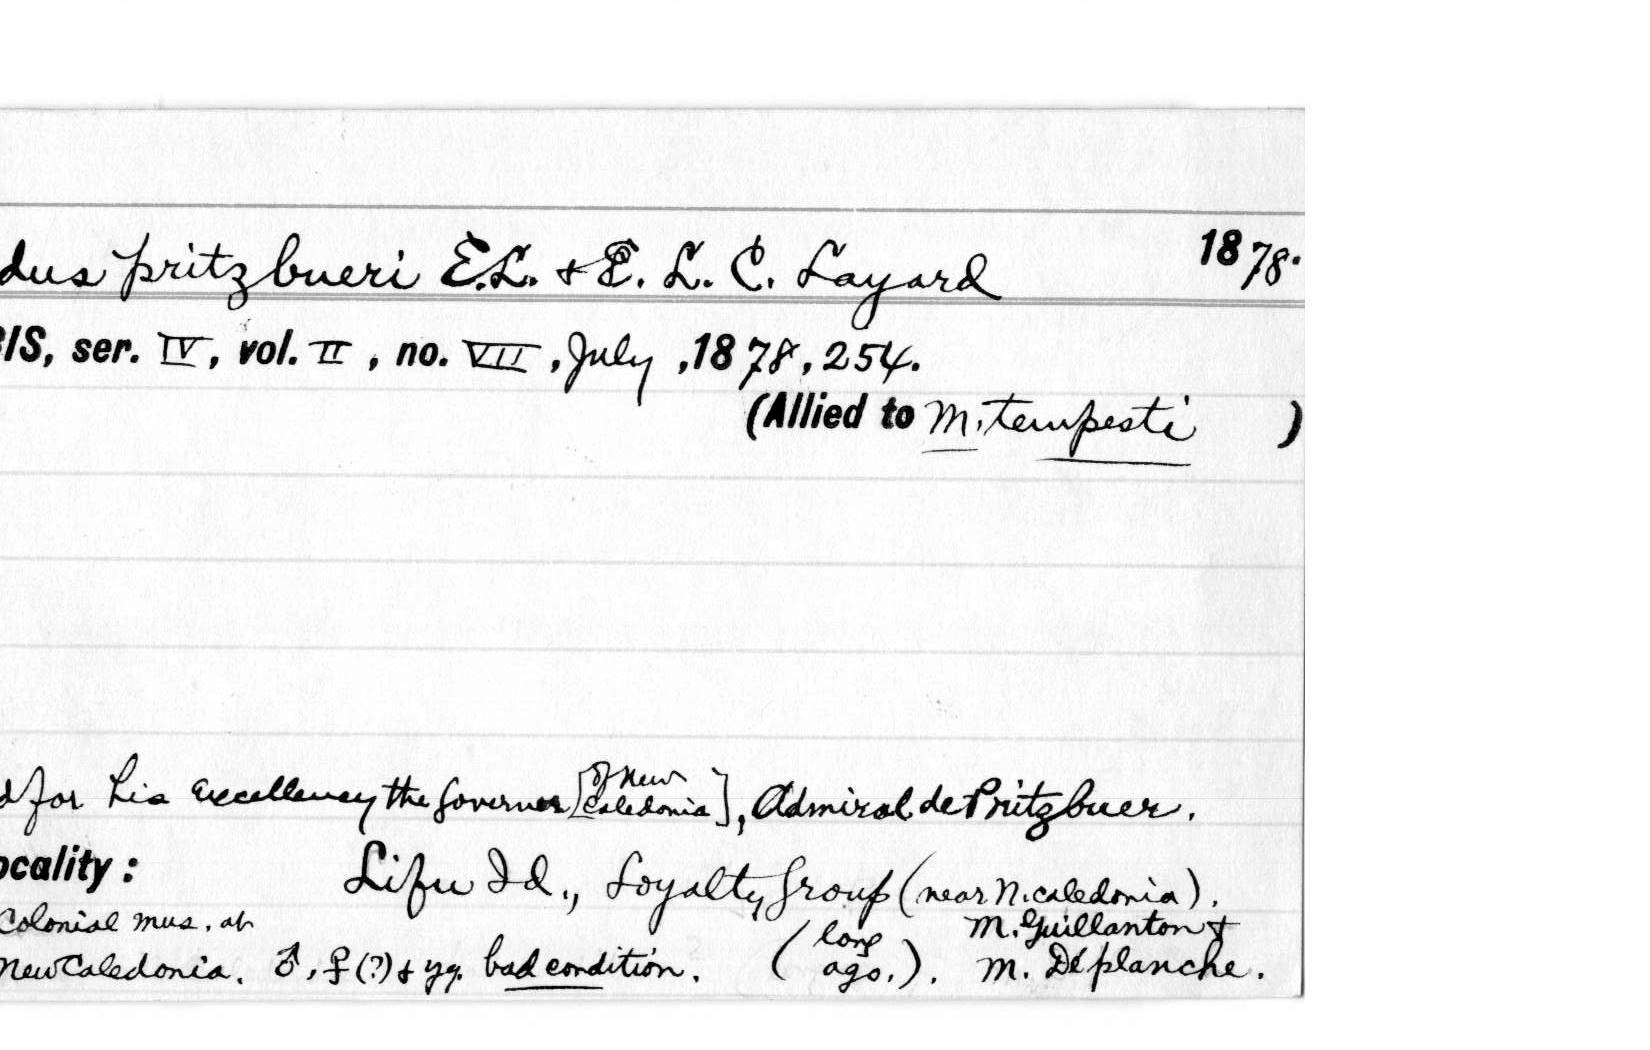 dus pritzbueri E.L. & E. L. C. Layard 1878.
BIS, ser. IV, vol. II, no. VII, July, 1878, 254.
(Allied to M. tempesti )
d for his Excellency the Governor [of New Caledonia], Admiral de Pritzbuer.
ocality: Lifu Id., Loyalty Group (near N. Caledonia).
Colonial Mus. at M. Guillanton &
New Caledonia. ♂, ♀ (?) & yg. bad condition. (long ago.). M. Déplanche.